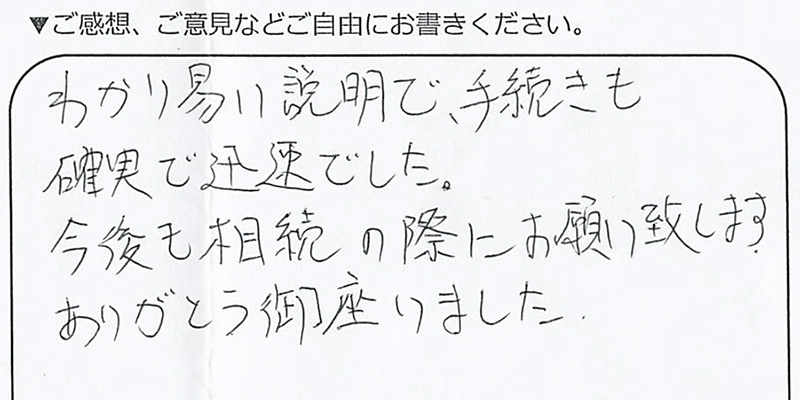 ▼ご感想、ご意見などご自由にお書きください。
わかり易い説明で、手続きも
確実で迅速でした。
今後も相続の際にお願い致します.
ありがとう御座いました.